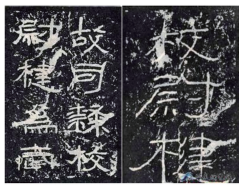 故司隸校
尉楗為武
校尉楗